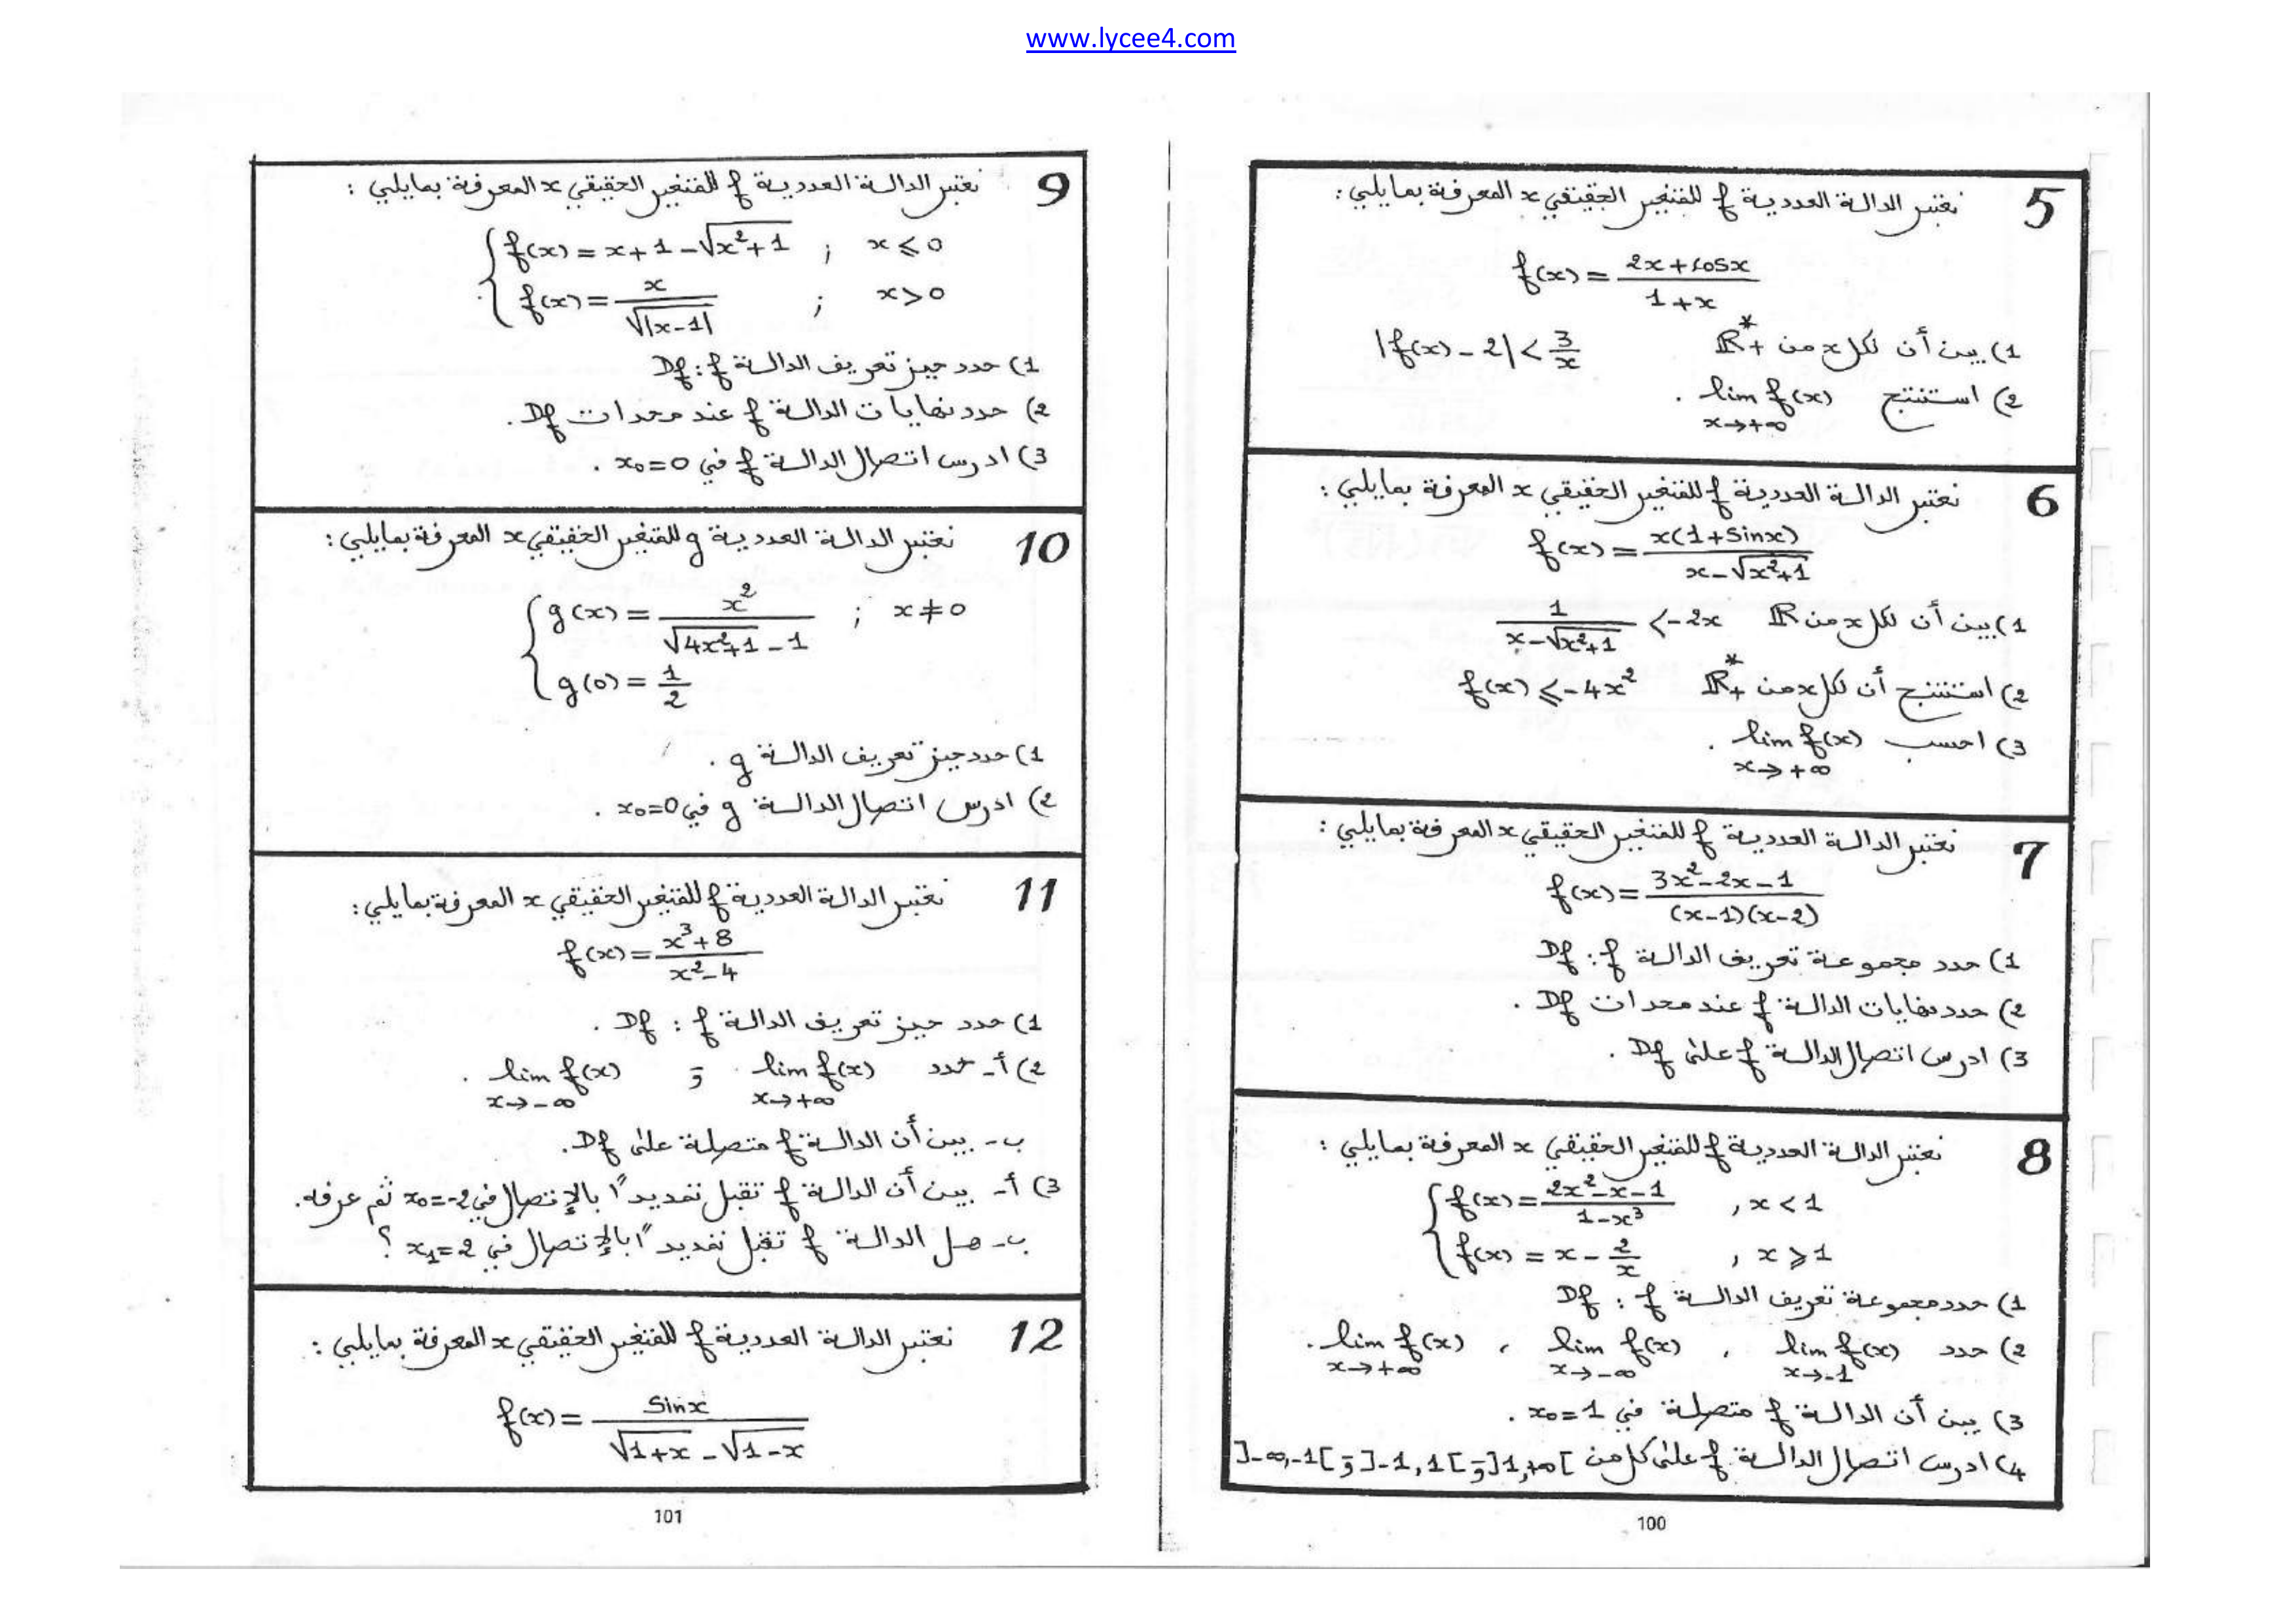 www.lycee4.com
5 نعتبر الدالة العددية f للمتغير الحقيقي x المعرفة بمايلي:
f(x) = (2x+cosx)/(1+x)
1) بين أن لكل x من ℝ*₊ |f(x) - 2| < 3/x
2) استنتج lim f(x) .
x→+∞
6 نعتبر الدالة العددية f للمتغير الحقيقي x المعرفة بمايلي:
f(x) = x(1+sinx)/(x-√(x²+1))
1) بين أن لكل x من ℝ 1/(x-√(x²+1)) < -2x
2) استنتج أن لكل x من ℝ*₊ f(x) ≤ -4x²
3) احسب lim f(x) .
x→+∞
7 نعتبر الدالة العددية f للمتغير الحقيقي x المعرفة بمايلي:
f(x) = (3x²-2x-1)/((x-1)(x-2))
1) حدد مجموعة تعريف الدالة f : Df
2) حدد نهايات الدالة f عند محدات Df .
3) ادرس اتصال الدالة f على Df .
8 نعتبر الدالة العددية f للمتغير الحقيقي x المعرفة بمايلي:
f(x) = (2x²-x-1)/(1-x³) , x < 1
f(x) = x - 2/x , x ≥ 1
1) حدد مجموعة تعريف الدالة f : Df
2) حدد lim f(x) , lim f(x) , lim f(x) .
x→-1 x→-∞ x→+∞
3) بين أن الدالة f متصلة في x₀=1 .
4) ادرس اتصال الدالة f على كل من ]-∞,-1[ و ]-1,1[ و ]1,+∞[
100
9 نعتبر الدالة العددية f للمتغير الحقيقي x المعرفة بمايلي:
f(x) = x+1-√(x²+1) ; x ≤ 0
f(x) = x/√|x-1| ; x > 0
1) حدد حيز تعريف الدالة f : Df
2) حدد نهايات الدالة f عند محدات Df .
3) ادرس اتصال الدالة f في x₀=0 .
10 نعتبر الدالة العددية g للمتغير الحقيقي x المعرفة بمايلي:
g(x) = x²/(√(4x²+1) - 1) ; x ≠ 0
g(0) = 1/2
1) حدد حيز تعريف الدالة g .
2) ادرس اتصال الدالة g في x₀=0 .
11 نعتبر الدالة العددية f للمتغير الحقيقي x المعرفة بمايلي:
f(x) = (x³+8)/(x²-4)
1) حدد حيز تعريف الدالة f : Df .
2) أ- حدد lim f(x) و lim f(x) .
x→+∞ x→-∞
ب- بين أن الدالة f متصلة على Df.
3) أ- بين أن الدالة f تقبل تمديداً بالإتصال في x₀=-2 ثم عرفه.
ب- هل الدالة f تقبل تمديداً بالإتصال في x₁=2 ؟
12 نعتبر الدالة العددية f للمتغير الحقيقي x المعرفة بمايلي:
f(x) = sinx/(√(1+x) - √(1-x))
101